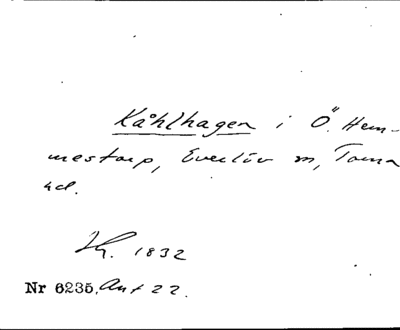 Kåhlhagen i Ö. Hem-
mestorp, Everlöv sn, Torna
hd.
Kg. 1832
Nr 6235. Ant 22.